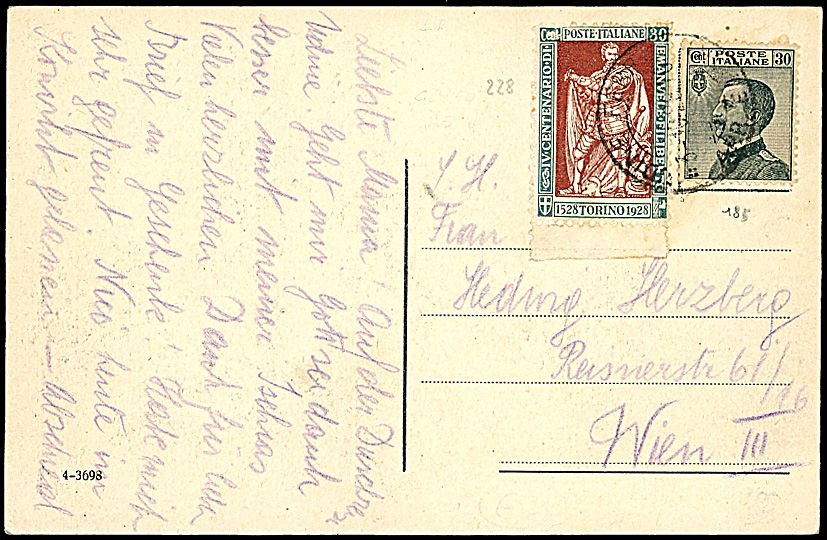 Liebste Mama! Auf der Durchr.
Udine. Geht mir Gott sei dank
besser mit meiner Ischias
Vielen herzlichen Dank für lieb
Brief u. Geschenk! Habe mich
sehr gefreut. Nur heute im
Konzert gewesen —
4-3698
POSTE·ITALIANE
Cent 30
IV CENTENARIO DI EMANUELE FILIBERTO
1528 TORINO 1928
POSTE
ITALIANE
Cent 30
228
185
S. H.
Frau
Hedwig Herzberg
Reisnerstr 61/
/16
Wien III